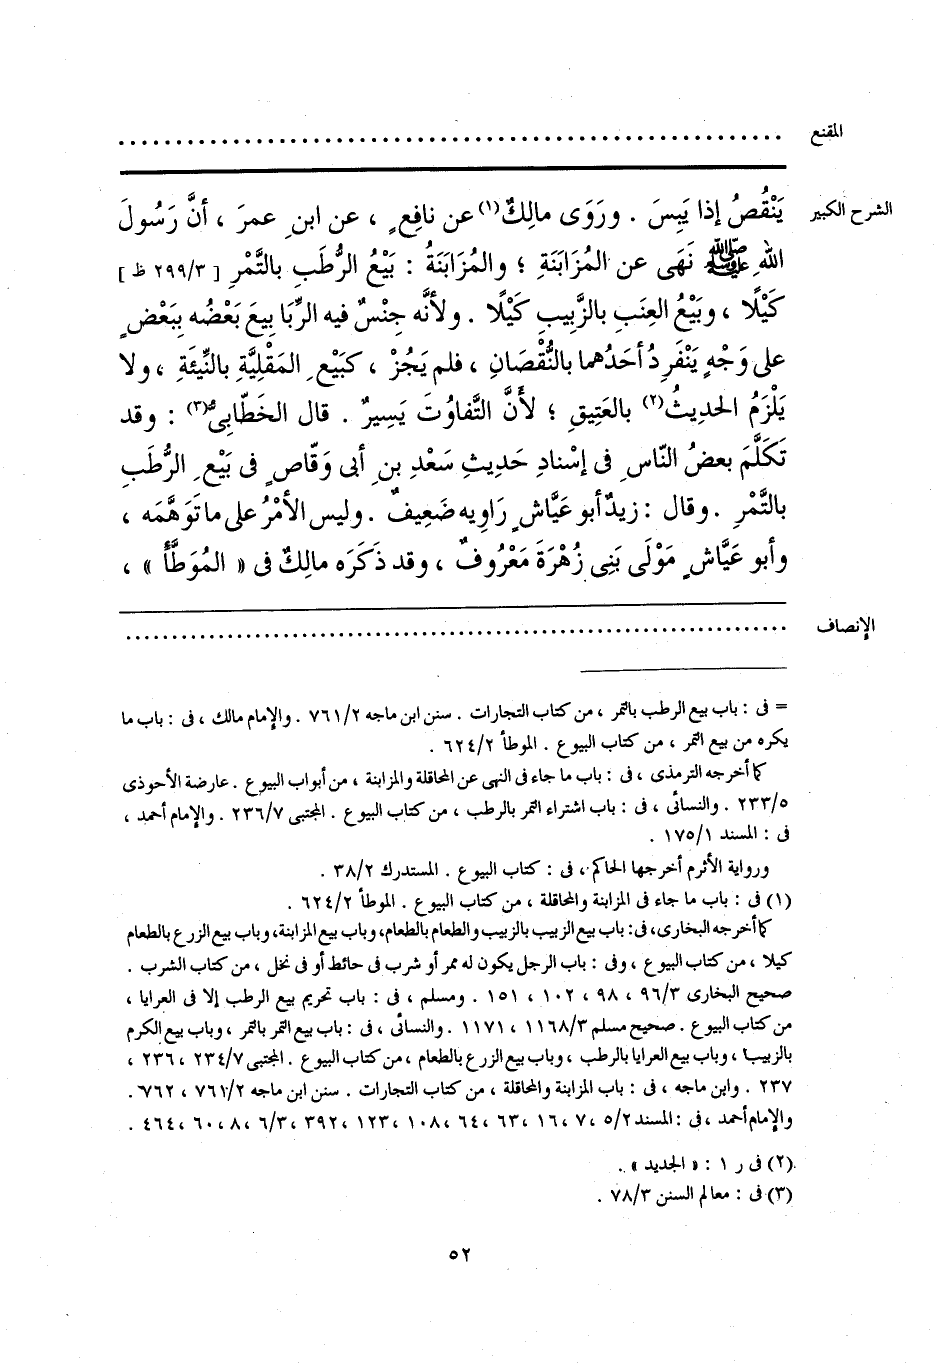 المقنع ..........................................................
الشرح الكبير يَنْقُصُ إذا يَبِسَ . ورَوَى مالِكٌ(١) عن نافِعٍ ، عن ابنِ عمرَ ، أنَّ رَسُولَ
اللهِ ﷺ نَهَى عن المُزَابَنَةِ ؛ والمُزَابَنَةُ : بَيْعُ الرُّطَبِ بالتَّمْرِ [ ٢٩٩/٣ ظ ]
كَيْلًا ، وبَيْعُ العِنَبِ بالزَّبِيبِ كَيْلًا . ولأنَّه جِنْسٌ فيه الرِّبَا بِيعَ بَعْضُه ببَعْضٍ
على وَجْهٍ يَنْفَرِدُ أحَدُهما بالنُّقْصَانِ ، فلم يَجُزْ ، كبَيْعِ المَقْلِيَّةِ بالنِّيئَةِ ، ولا
يَلْزَمُ الحديثُ(٢) بالعَتِيقِ ؛ لأنَّ التَّفاوُتَ يَسِيرٌ . قال الخَطَّابِىُّ(٣) : وقد
تَكَلَّمَ بعضُ النّاسِ فى إسْنادِ حَدِيثِ سَعْدِ بنِ أبى وَقّاصٍ فى بَيْعِ الرُّطَبِ
بالتَّمْرِ . وقال : زيدٌ أبو عَيَّاشٍ رَاوِيه ضَعِيفٌ . وليس الأمْرُ على ما تَوَهَّمَه ،
وأبو عَيَّاشٍ مَوْلَى بَنِى زُهْرَةَ مَعْرُوفٌ ، وقد ذَكَرَه مالِكٌ فى « المُوَطَّأ » ،
الإنصاف ..........................................................
= فى : باب بيع الرطب بالتمر ، من كتاب التجارات . سنن ابن ماجه ٧٦١/٢ . والإمام مالك ، فى : باب ما
يكره من بيع التمر ، من كتاب البيوع . الموطأ ٦٢٤/٢ .
كما أخرجه الترمذى ، فى : باب ما جاء فى النهى عن المحاقلة والمزابنة ، من أبواب البيوع . عارضة الأحوذى
٢٣٣/٥ . والنسائى ، فى : باب اشتراء التمر بالرطب ، من كتاب البيوع . المجتبى ٢٣٦/٧ . والإمام أحمد ،
فى : المسند ١٧٥/١ .
ورواية الأثرم أخرجها الحاكم ، فى : كتاب البيوع . المستدرك ٣٨/٢ .
(١) فى : باب ما جاء فى المزابنة والمحاقلة ، من كتاب البيوع . الموطأ ٦٢٤/٢ .
كما أخرجه البخارى، فى: باب بيع الزبيب بالزبيب والطعام بالطعام، وباب بيع المزابنة، وباب بيع الزرع بالطعام
كيلا ، من كتاب البيوع ، وفى : باب الرجل يكون له ممر أو شرب فى حائط أو فى نخل ، من كتاب الشرب .
صحيح البخارى ٩٦/٣ ، ٩٨ ، ١٠٢ ، ١٥١ . ومسلم ، فى : باب تحريم بيع الرطب إلا فى العرايا ،
من كتاب البيوع . صحيح مسلم ١١٦٨/٣ ، ١١٧١ . والنسائى ، فى : باب بيع التمر بالتمر ، وباب بيع الكرم
بالزبيب ، وباب بيع العرايا بالرطب ، وباب بيع الزرع بالطعام ، من كتاب البيوع . المجتبى ٢٣٤/٧ ، ٢٣٦ ،
٢٣٧ . وابن ماجه ، فى : باب المزابنة والمحاقلة ، من كتاب التجارات . سنن ابن ماجه ٧٦١/٢ ، ٧٦٢ .
والإمام أحمد ، فى : المسند ٥/٢ ، ٧ ، ١٦ ، ٦٣ ، ٦٤ ، ١٠٨ ، ١٢٣ ، ٣٩٢ ، ٦/٣ ، ٨ ، ٦٠ ، ٤٦٤ .
(٢) فى ر ١ : « الجديد » .
(٣) فى : معالم السنن ٧٨/٣ .
٥٢